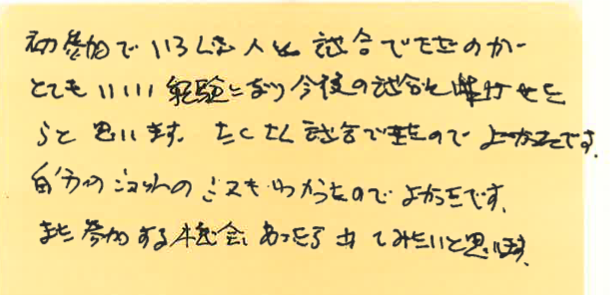 初参加でいろんな人と試合できたのが
とてもいい経験になり今後の試合に活かせた
らと思います。たくさん試合できたのでよかったです。
自分のミスもわかったのでよかったです。
また参加する機会あったら出てみたいと思います。